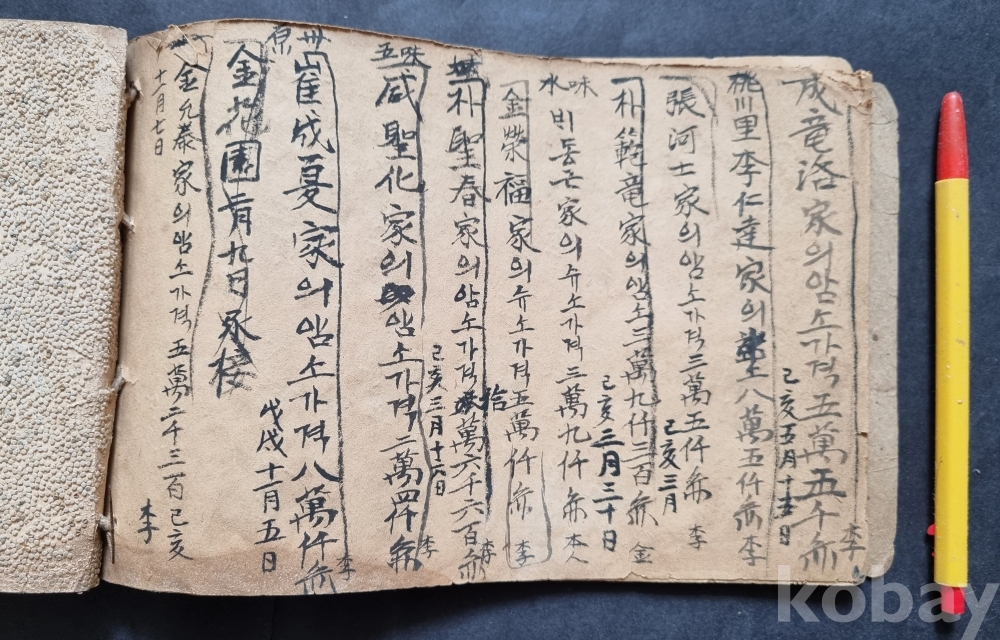 成竜洛家의암소가격五萬五千
己亥五月十五日
李
桃川里李仁達家의 八萬五仟
李
張河士家의암소가격三萬五仟
己亥三月
李
朴範竜家의암소三萬九仟三百
己亥三月二十日
金
味水
비동근家의슈소가격三萬九仟
本人
金榮福家의슈소가격五萬仟
李
朴聖春家의암소가격 拾萬六千六百
李
味五
咸聖化家의암소가격二萬四仟
己亥三月十六日
李
崔成夏家의암소가격八萬仟
戊戌十一月五日
李
金 園 月九日
金允泰家의암소가격五萬二千三百 己亥
十一月七日
李
kobay